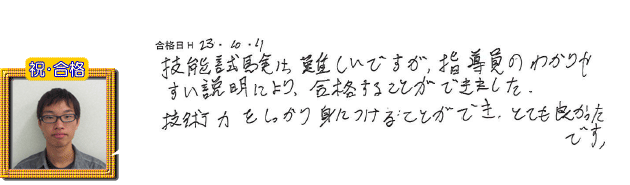 祝・合格
合格日 H 23・10・4
技能試験は、難しいですが、指導員のわかりや
すい説明により、合格することができました。
技術力をしっかり身につけることができ、とても良かった
です。